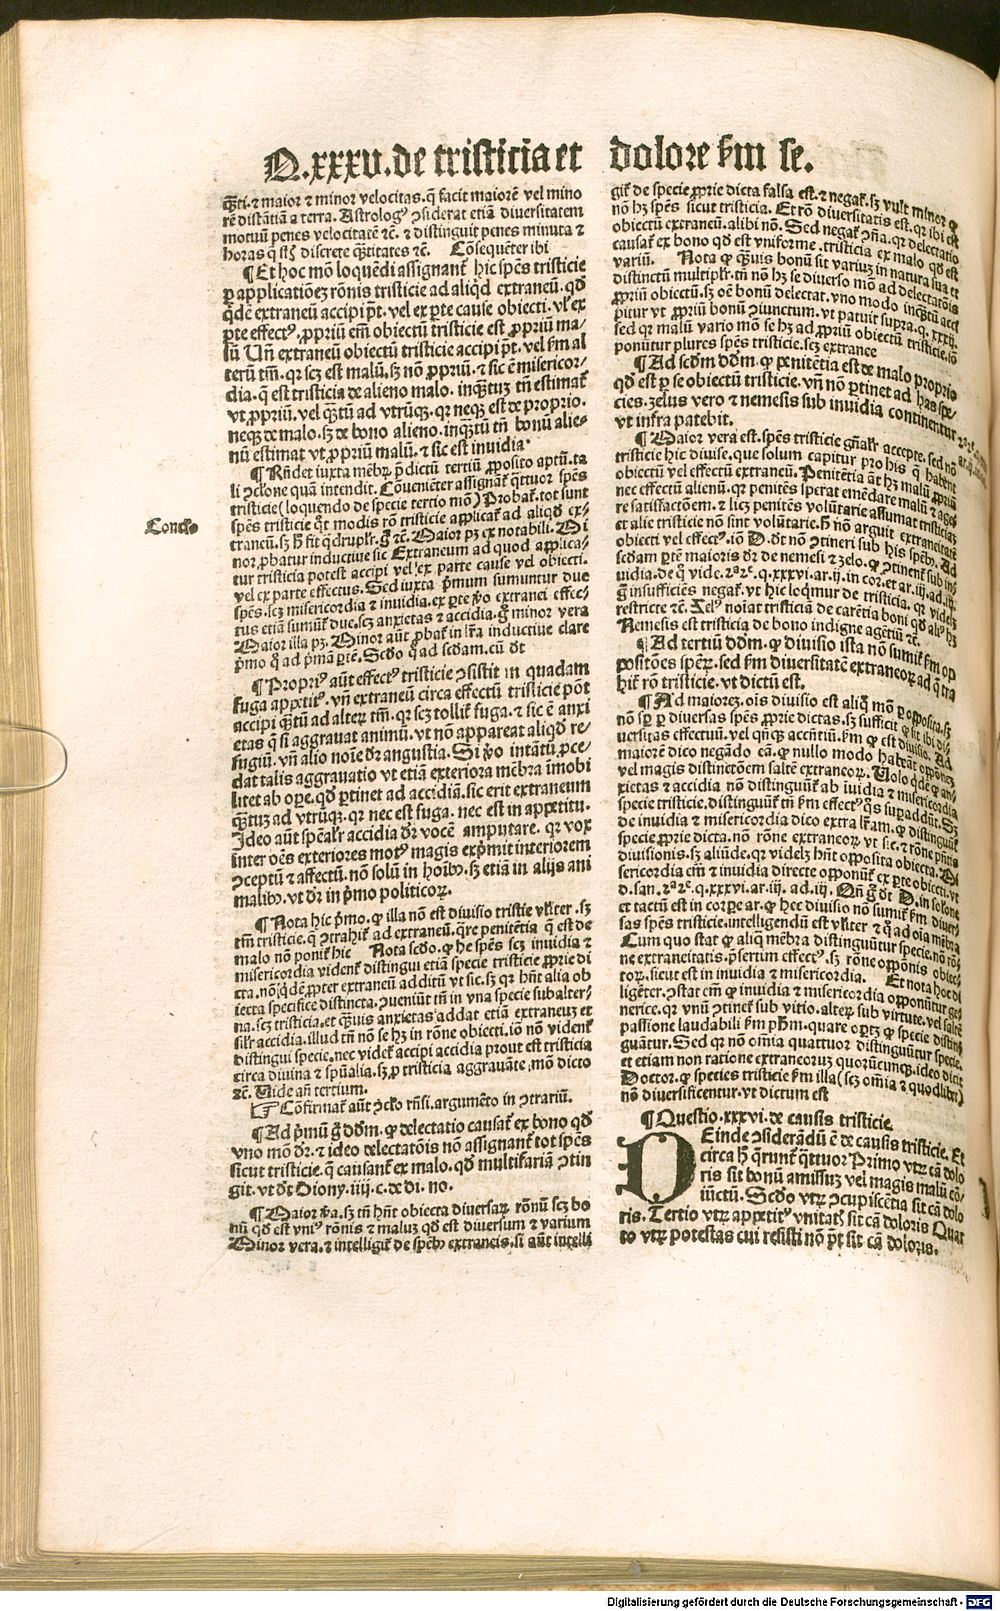 Q.xxxv.de tristicia et dolore ẜm se.
q̄ti.⁊ maior ⁊ minor velocitas.q̄ facit maiorē vel mino
rē distātiā a terra. Astrologꝰ ↄsiderat etiā diuersitatem
motuū penes velocitatē ⁊c. ⁊ distinguit penes minuta ⁊
horas
discrete q̄ntitates ⁊c. Cōsequēter ibi
¶ Et hoc mō loquēdi assignant̄ hic spēs tristicie
ꝑ applicationeꝫ rōnis tristicie ad aliqḋ extraneū. qḋ
q̇dē extraneū accipi pt̄. vel ex ꝑte cause obiecti. vl̓ ex
ꝑte effectꝰ. ꝓpriū em̄ obiectū tristicie est ꝓpriū ma-
lū Un̄ extraneū obiectū tristicie accipi pt̄. vel ẜm al
terū tm̄. qꝛ scꝫ est malū. sꝫ nō ꝓpriū. ⁊ sic ē misericor-
dia. q̄ est tristicia de alieno malo. inq̄ꝫtuꝫ tn̄ estimat̄
vt ꝓpriū. vel q̄ꝫtū ad vtrūqꝫ. qꝛ neqꝫ est de proprio.
neqꝫ de malo. sꝫ de bono alieno. inq̄ꝫtū tn̄ bonū alie-
nū estimat vt ꝓpriū malū. ⁊ sic est inuidia.
¶ Rn̄det iuxta mēbꝝ p̄dictū tertiū ꝓposito aptū. ta
li ↄclone quā intendit. Cōueniēter assignant̄ q̄ttuor spēs
tristicie (loquendo de specie tertio mō) Probat̄. tot sunt
spēs tristicie q̇t modis rō tristicie applicat̄ ad aliqḋ ex-
traneū. sꝫ h̄ fit q̇drupl̓r. g̊ ⁊c. Maior pꝫ ex notabili. Mi
nor ꝓbatur inductiue sic Extraneum ad quod applica-
tur tristicia potest accipi vel ex parte cause vel obiecti.
vel ex parte effectus. Sed iuxta p̄mum sumuntur due
spēs. scꝫ misericordia ⁊ inuidia. ex ꝑte ꝟo extranei effec-
tus etiā sumunt̄ due. scꝫ anxietas ⁊ accidia. g̊ minor vera
Maior illa pꝫ. Minor aūt ꝓbat̄ in lr̄a inductiue clare
p̄mo q̊ ad p̄mā ꝑtē. Scḋo q̊ ad scḋam. cū dt̄
Conclo
¶ Propriꝰ aūt effectꝰ tristicie ↄsistit in quadam
fuga appetitꝰ. vn̄ extraneū circa effectū tristicie pōt
accipi q̄ꝫtū ad alteꝝ tm̄. qꝛ scꝫ tollit̄ fuga. ⁊ sic ē anxi
etas q̄ sic aggrauat animū. vt nō appareat aliqḋ re-
fugiū. vn̄ alio noīe dr̄ angustia. Si ꝟo intātū ꝓce-
dat talis aggrauatio vt etiā exteriora mēbra īmobi
litet ab oꝑe. qḋ ꝑtinet ad accidiā. sic erit extraneum
q̄ꝫtuꝫ ad vtrūqꝫ. qꝛ nec est fuga. nec est in appetitu.
Ideo aūt spēal̓r accidia dr̄ vocē amputare. qꝛ vox
inter oēs exteriores motꝰ magis exp̄mit interiorem
ↄceptū ⁊ affectū. nō solū in hoībꝫ. sꝫ etiā in alijs ani
malibꝫ. vt dr̄ in p̄mo politicoꝝ.
¶ Nota hic p̄mo. ꝙ illa nō est diuisio tristie vl̓iter. sꝫ
tm̄ tristicie. q̄ ↄtrahit̄ ad extraneū. q̄re penitētia q̄ est de
malo nō ponit̄ hic Nota scḋo. ꝙ he spēs scꝫ inuidia ⁊
misericordia vident̄ distingui etiā specie tristicie ꝓprie di
cta. nō q̇dē ꝓpter extraneū additū vt sic. sꝫ qꝛ hn̄t alia ob
iecta specifice distincta. ↄueniūt tn̄ in vna specie subalter-
na. scꝫ tristicia. et q̄uis anxietas addat etiā extraneuꝫ et
sil̓r accidia. illud tn̄ nō se hꝫ in rōne obiecti. iō nō vident̄
distingui specie. nec videt̄ accipi accidia prout est tristicia
circa diuina ⁊ spūalia. sꝫ ꝓ tristicia aggrauāte. mō dicto
⁊c. Uide an̄ tertium.
☞ Cōfirmat̄ aūt ↄclo rn̄si. argumēto in ↄtrariū.
¶ Ad p̄mū g̊ dḋm. ꝙ delectatio causat̄ ex bono qḋ
vno mō dr̄. ⁊ ideo delectatōis nō assignant̄ tot spēs
sicut tristicie. q̄ causant̄ ex malo. qḋ multifariā ↄtin
git. vt dt̄ Diony. iiij. c. de di. no.
¶ Maior ꝟa. sꝫ tn̄ hn̄t obiecta diuersaꝝ rōnū scꝫ bo
nū qḋ est vniꝰ rōnis ⁊ maluꝫ qḋ est diuersum ⁊ varium
Minor vera. ⁊ intelligit̄ de spēbꝫ extraneis. si aūt intelli
git̄ de specie ꝓprie dicta falsa est. ⁊ negat̄. sꝫ vult minor ꝙ
nō hꝫ spēs sicut tristicia. Et rō diuersitatis est. qꝛ ibi est
obiectū extraneū. alibi nō. Sed negat̄ ↄn̄a. qꝛ delectatio
causat̄ ex bono qḋ est vniforme. tristicia ex malo qḋ est
variū. Nota ꝙ q̄uis bonū sit variuꝫ in natura sua et
distinctū multipl̓r. tn̄ nō hꝫ se diuerso mō ad delectatōis
ꝓpriū obiectū. sꝫ oē bonū delectat. vno modo inq̄ꝫtū acci
pitur vt ꝓpriū bonū ↄiunctum. vt patuit supra. q. xxxij.
sed qꝛ malū vario mō se hꝫ ad ꝓpriū obiectū tristicie. iō
ponūtur plures spēs tristicie. scꝫ extranee
¶ Ad scḋm dḋm. ꝙ penitētia est de malo proprio
qḋ est ꝑ se obiectū tristicie. vn̄ nō ꝑtinet ad has spe-
cies. zelus vero ⁊ nemesis sub inuidia continentur
vt infra patebit.
¶ Maior vera est. spēs tristicie gn̄al̓r accepte. sed nō
tristicie hic diuise. que solum capitur pro his q̄ habēnt
obiectū vel effectū extraneū. Penitētia aūt hꝫ malū ꝓpriū
nec effectū alienū. qꝛ penitēs sperat emēdare malū ⁊ age
re satisfactōem. ⁊ licꝫ penitēs volūtarie assumat tristiciaꝫ
et alie tristicie nō sint volūtarie. h̄ nō arguit extraneitatē
obiecti vel effectꝰ. iō D. dt̄ nō ↄtineri sub his spēbꝫ. Ad
scḋam ꝑtē maioris dr̄ de nemesi ⁊ zelo. ꝙ ↄtinent̄ sub in-
uidia. de q̊ vide. 2ᵃ2ᵉ. q. xxxvi. ar. ij. in cor. et ar. iij. ad. iij.
g̊ insufficiēs negat̄. vt hic loq̇mur de tristicia. qꝛ videlꝫ
restricte ⁊c. Zelꝰ noīat tristiciā de carētia boni qḋ aliꝰ hꝫ
Nemesis est tristicia de bono indigne agētiū ⁊c.
¶ Ad tertiū dḋm. ꝙ diuisio ista nō sumit̄ ẜm op
positōes spēꝝ. sed ẜm diuersitatē extraneoꝝ ad q̄ tra
hit̄ rō tristicie. vt dictū est.
¶ Ad maioreꝫ. oīs diuisio est aliq̊ mō ꝑ opposita. sꝫ
nō sꝑ ꝑ diuersas spēs ꝓprie dictas. sꝫ sufficit ꝙ sit ibi di-
uersitas effectuū. vel qn̄cqꝫ accn̄tiū. ẜm ꝙ est diuisio. Ad
maiorē dico negādo eā. ꝙ nullo modo habeāt oppōneꝫ
vel magis distinctōem saltē extraneoꝝ. Uolo q̇dē ꝙ an-
xietas ⁊ accidia nō distinguūt̄ ab īuidia ⁊ misericordia
specie tristicie. distinguūt̄ tn̄ ẜm effectꝰ q̊s suꝑaddūt. Sꝫ
de inuidia ⁊ misericordia dico extra lr̄am. ꝙ distinguūt̄
specie ꝓprie dicta. nō rōne extraneoꝝ vt sic. ⁊ rōne p̄ntis
diuisionis. sꝫ aliūde. qꝛ videlꝫ hn̄t opposita obiecta. Mi
sericordia em̄ ⁊ inuidia directe opponūt̄ ex ꝑte obiecti. vt
d. san. 2ᵃ2ᵉ. q. xxxvi. ar. iij. ad. iij. Qn̄ g̊ dt̄ D. in solōne
et tactū est in corꝑe ar. ꝙ hec diuisio nō sumit̄ ẜm diuer
sas spēs tristicie. intelligendū est vl̓iter ⁊ q̊ ad oīa mēbra
Cum quo stat ꝙ aliq̄ mēbra distinguūtur specie. nō rō-
ne extraneitatis. p̄sertum effectꝰ. sꝫ rōne oppōnis obiec-
toꝝ. sicut est in inuidia ⁊ misericordia. Et nota hoc di
ligēter. ↄstat em̄ ꝙ inuidia ⁊ misericordia opponūtur ge
nerice. qꝛ vnū ↄtinet̄ sub vitio. alteꝝ sub virtute. vel saltē
passione laudabili ẜm pħm. quare oꝑtꝫ ꝙ specie disting
guātur. Sed qꝛ nō omīa quattuor distinguūtur specie.
et etiam non ratione extraneoruꝫ quorūcunqꝫ. ideo dicit
Doctor. ꝙ species tristicie ẜm illa (scꝫ omīa ⁊ quodlibet)
nō diuersificentur. vt dictum est
¶ Questio. xxxvi. de causis tristicie.
DEinde ↄsiderādū ē de causis tristicie. Et
circa h̄ q̄runt̄ q̄ttuor Primo vtꝝ cā dolo
ris sit bonū amissuꝫ vel magis malū cō-
iūctū. Scḋo vtꝝ ↄcupiscētia sit cā dolo
ris. Tertio vtꝝ appetitꝰ vnitatꝭ sit cā doloris Quar
to vtꝝ potestas cui resisti nō pt̄ sit cā doloris.
Digitalisierung gefördert durch die Deutsche Forschungsgemeinschaft - DFG